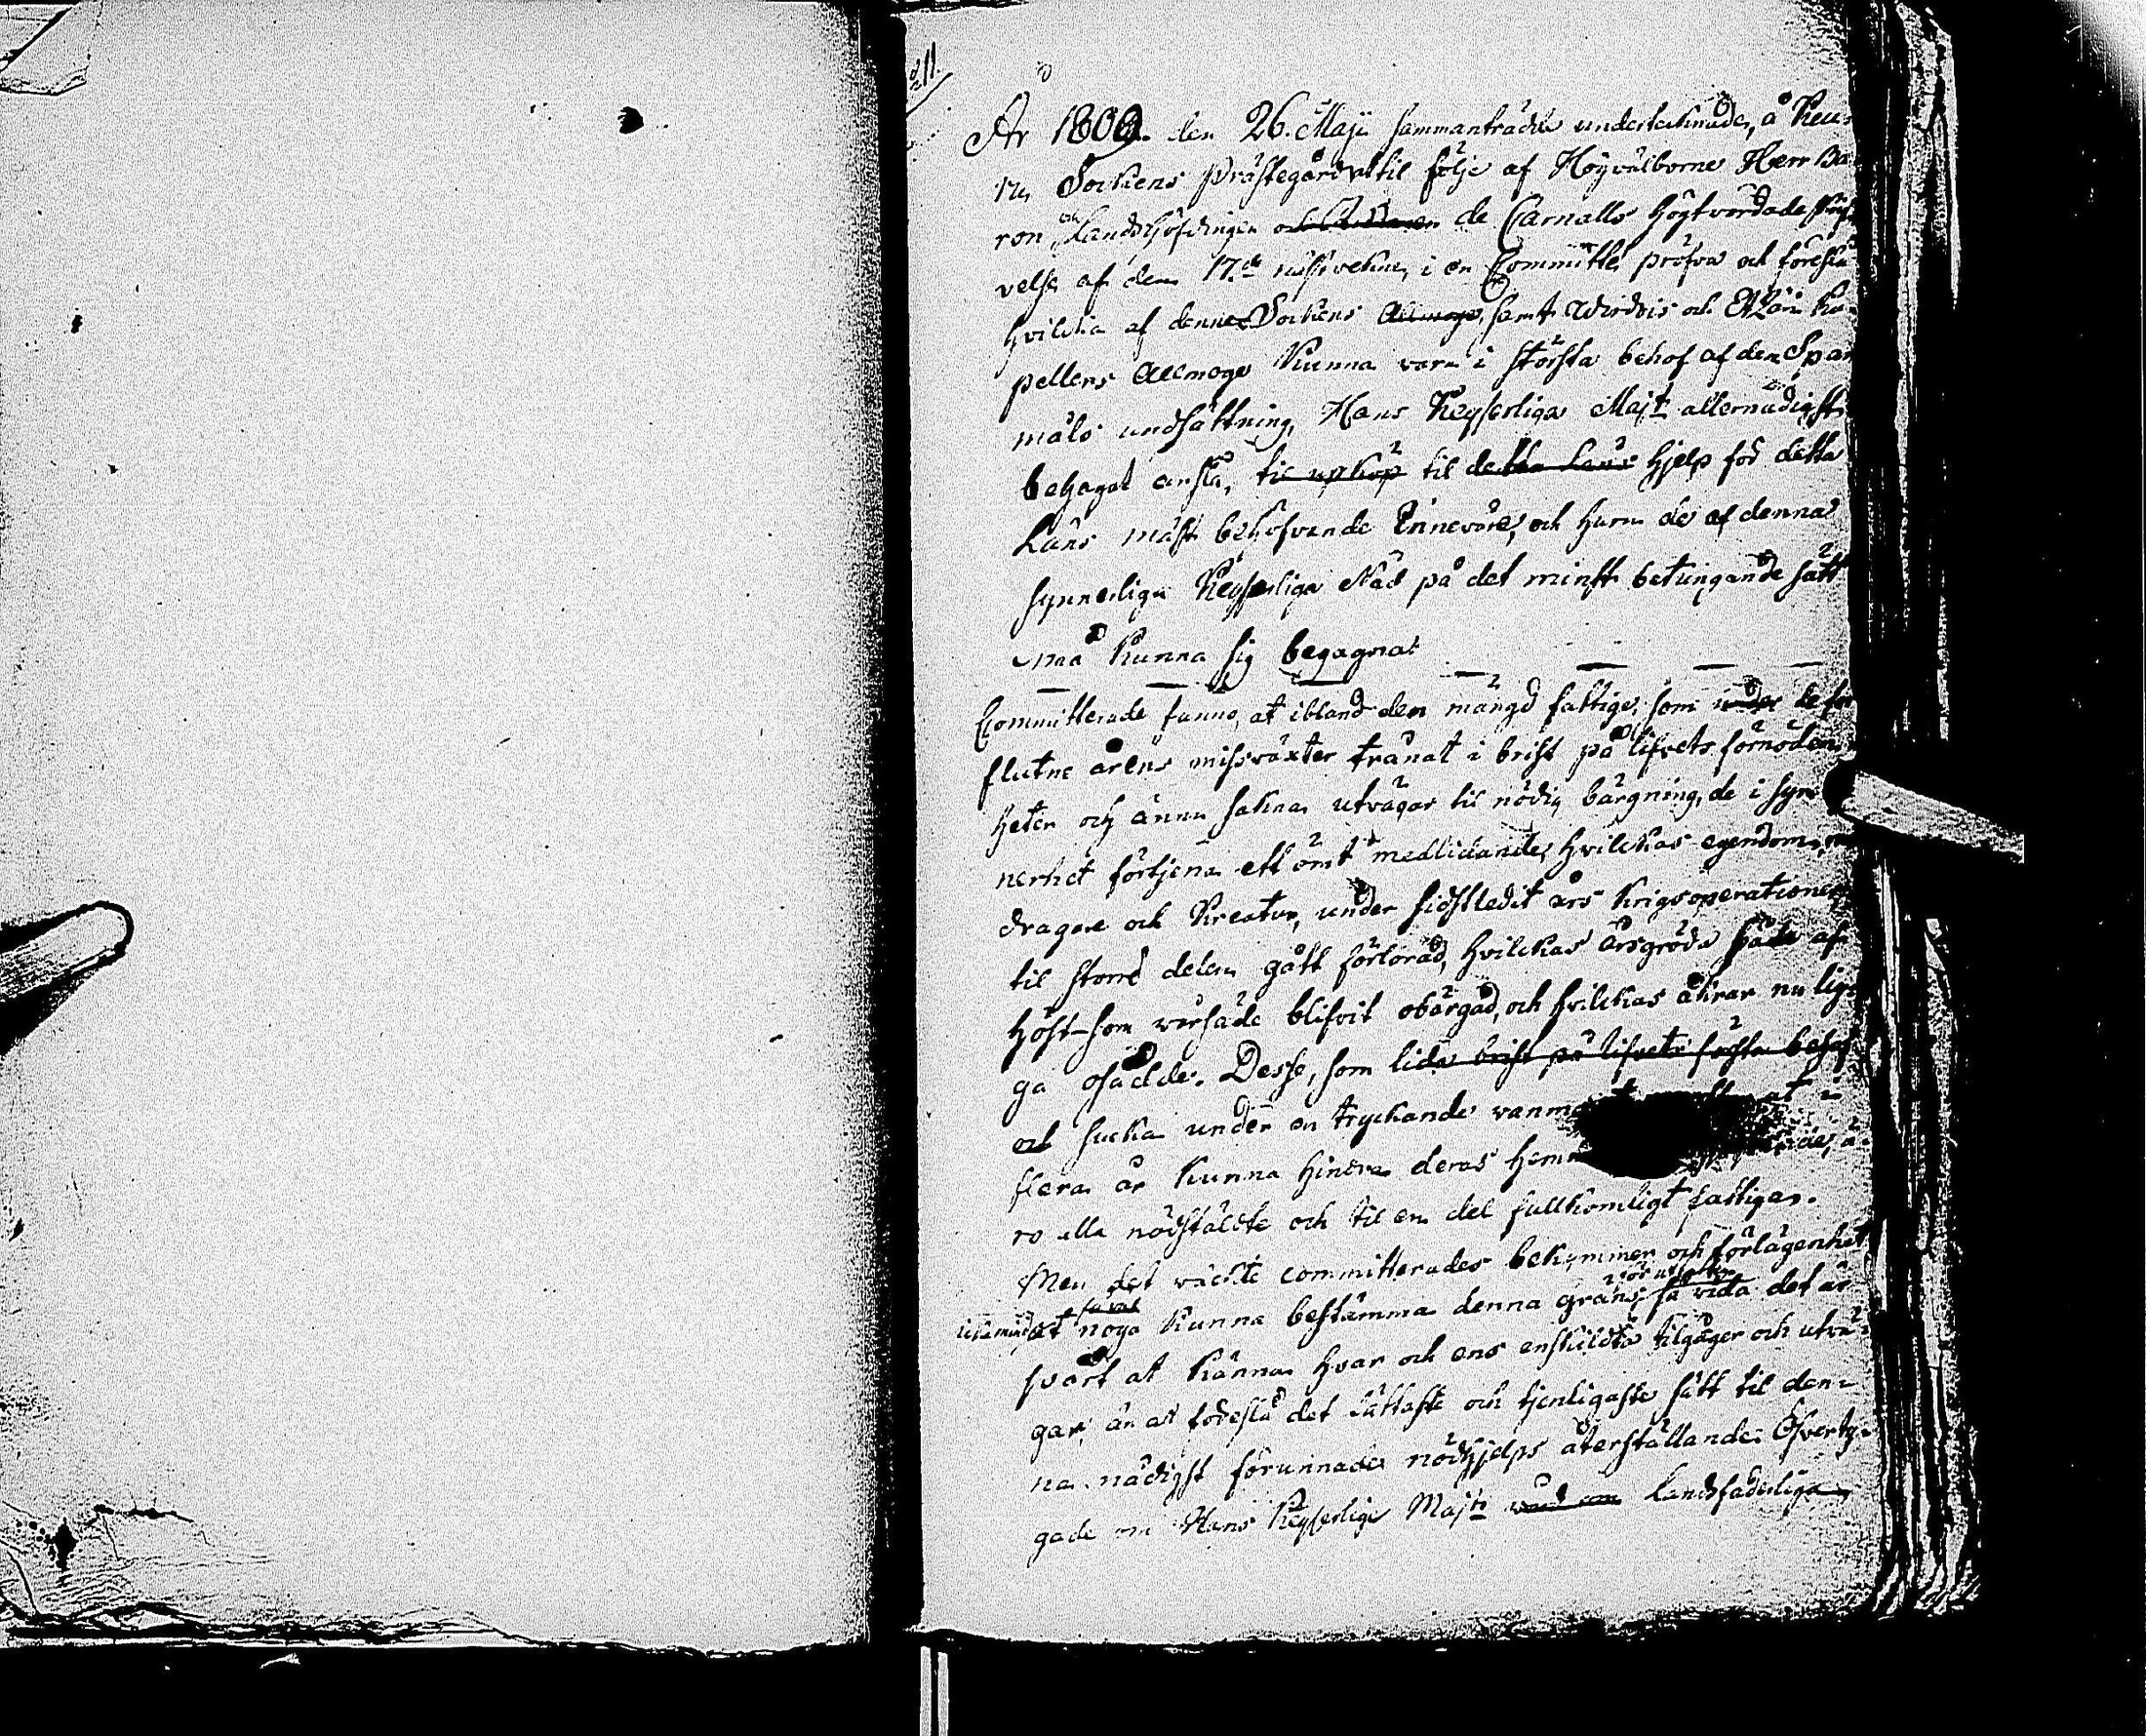 År 1809 den 26 Maji sammanträdde undertecknade, å Keu-
ru Sockens Prästegård til följe af Högvälborne Herr Ba-
ron, Landshöfdingen de Carnalls högtvördade skrif-
velse af den 17de nästvekne, i en Committé pröfva och föreslå
hvilcka af denne Sockens Allmoge, samt Wirdois och Etzäri Ka-
pellers Allmoge kunna vara i största behof af den Span-
måls undsättning, Hans Keyserliga Majt allernådigst
behagat anslå, til upköp til detta Läns hjelp för detta
Läns mäst behöfvande Innevånare, och huru de af denna
synnerliga Keyserliga Nåd på det minst betungande sätt
må kunna sig begagna
Committerade funno, at ibland den mängd fattige, som under de för-
flutne årens missväxter trånat i brist på lifvets förnöden-
heter och ännu sakna utvägar til nödig bärgning, de i syn-
nerhet förtjena ett ömt medlidande, hvilckas egendom,
dragare och Kreatur, under sidstledit års Krigsoperationer
til större delen gått förlorad, hvilckas årsgröda både af
höst- som vårsäde blifvit obärgad, och hvilckas åkrar nu lig-
ga osådde. Desse, som lida brist på lifvets första behof
och sucka under en tryckande at i
flera år kunna hindra deras
ro alla nödstälde och til en del fullkomligt fattige.
Men det väckte committerades bekymmer och förlägenhet
at noga kunna bestämma denna gräns, så vida det är
svårt at känna hvar och ens enskildta tilgågar och utvä-
gar, än at föreslå det lättaste och tjenligaste sätt til den-
na nådigst förunnade nödhjelps återställande. Öfverty-
gade om Hans Keyserliga Majts Landsfaderliga